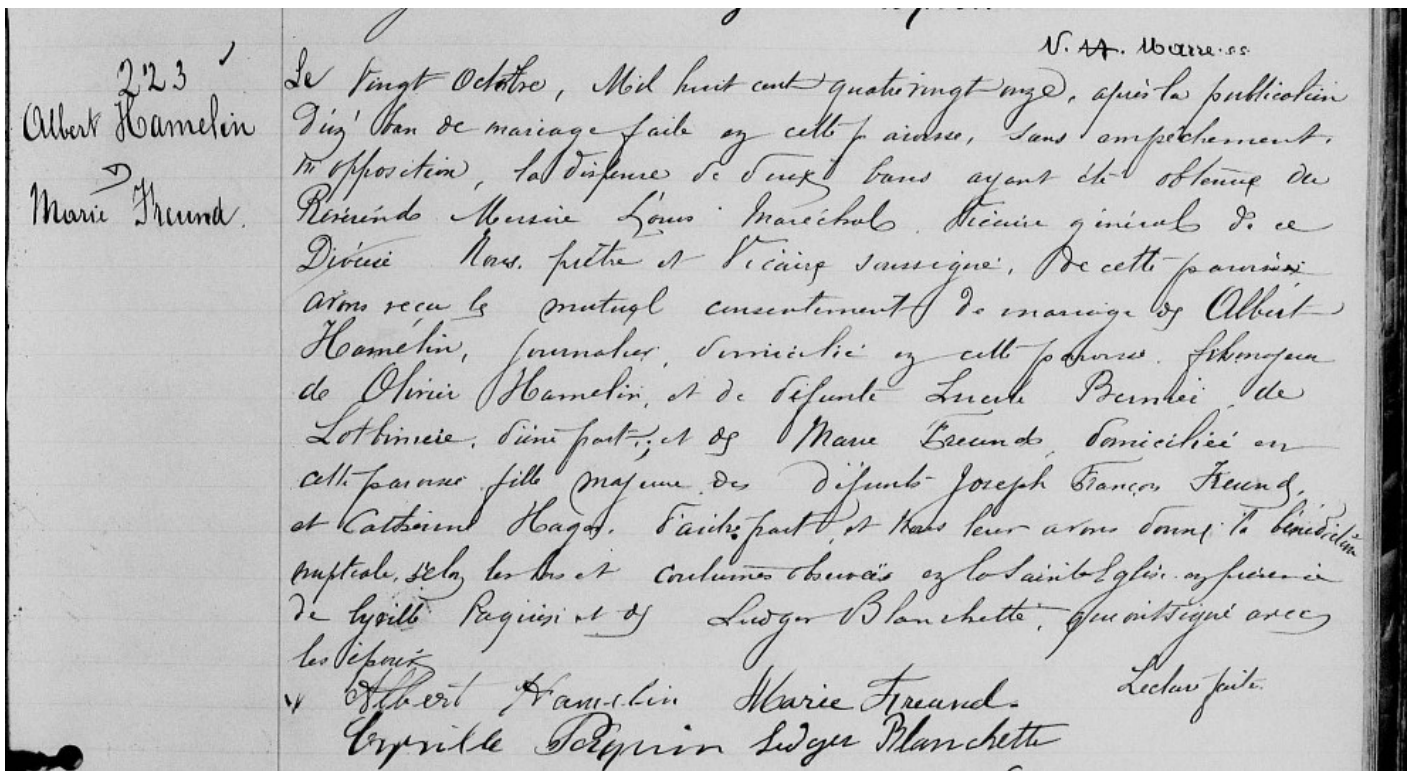 223
Albert Hamelin
&
Marie Freund.
Le Vingt Octobre, Mil huit cent quatrevingt onze, après la publication
d'un ban de mariage faite en cette paroisse, sans empêchement
ni opposition, la dispense de deux bans ayant été obtenue du
Révérend Messire Louis Maréchal Vicaire général de ce
Diocèse Nous, prêtre et Vicaire soussigné, de cette paroisse
avons reçu le mutuel consentement de mariage de Albert
Hamelin, journalier, domicilié en cette paroisse fils majeur
de Olivier Hamelin, et de défunte Lucie Bernier, de
Lotbinière, d'une part; et de Marie Freund, domiciliée en
cette paroisse fille majeure des défunts Joseph François Freund,
et Catherine Hagar, d'autre part, et Nous leur avons donné la bénédiction
nuptiale, selon les lois et coutumes observées en la Sainte Eglise en présence
de Cyrille Paquin et de Ludger Blanchette, qui ont signé avec
les époux
Lecture faite.
Albert Hamelin Marie Freund.
Cyrille Paquin Ludger Blanchette